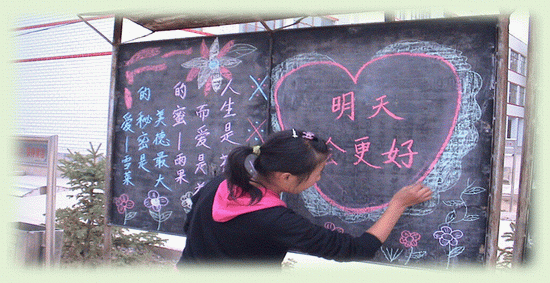 人生是
而爱是
的蜜—雨果
美德最大
的秘密是
爱—雪莱
明天
会更好